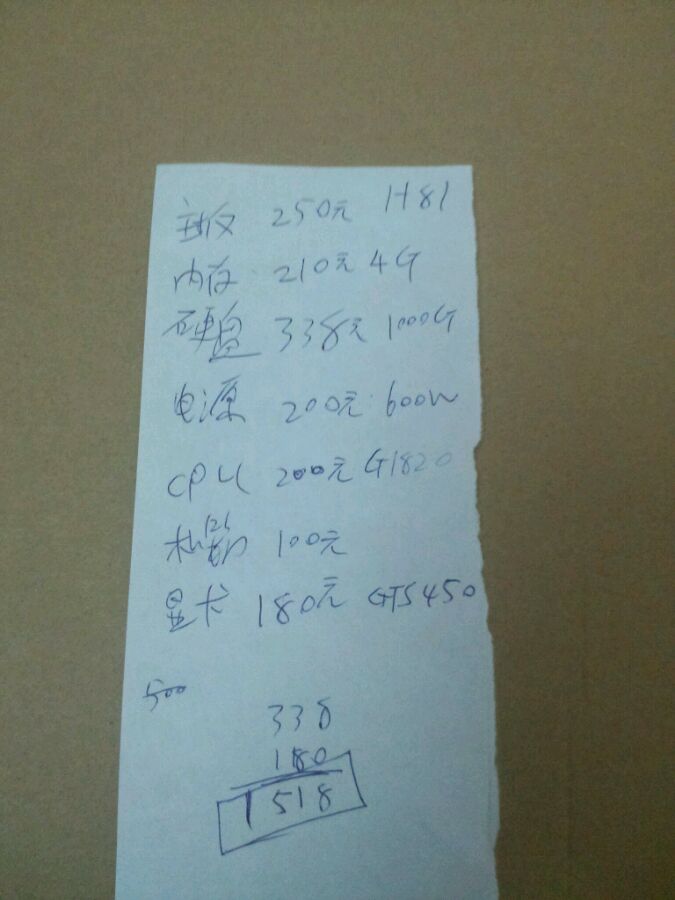 主板 250元 H81
内存 210元 4G
硬盘 338元 1000G
电源 200元 600W
CPU 200元 G1820
机箱 100元
显卡 180元 GTS450
500
338
180
1518